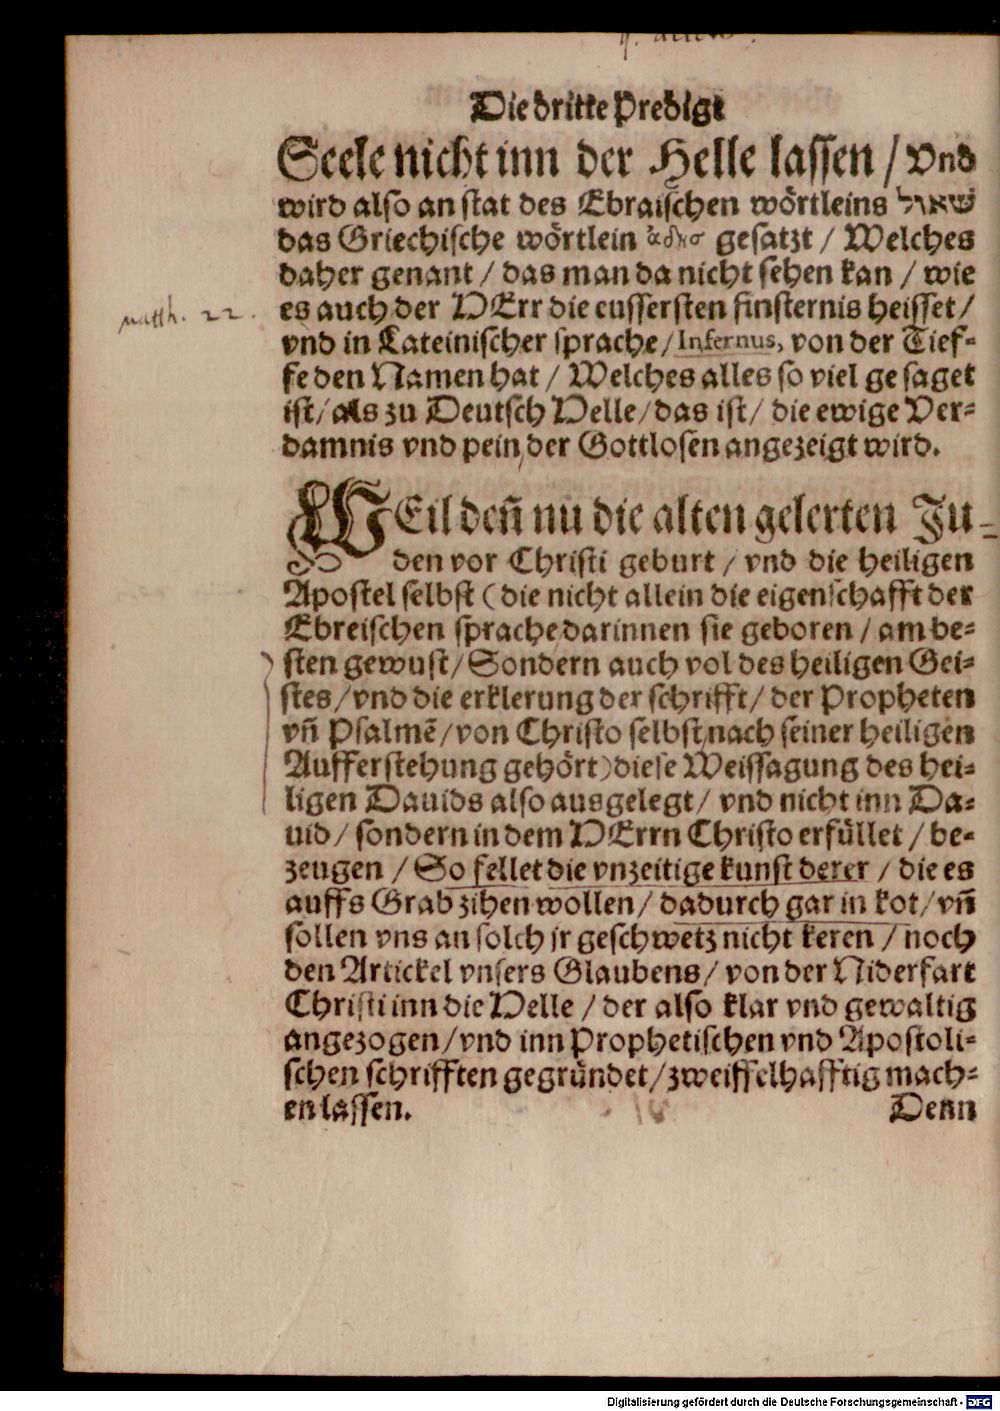 Die dritte Predigt
Seele nicht inn der Helle lassen / Vnd
wird also an stat des Ebraischen wörtleins שאול
das Griechische wörtlein ᾅδης gesatzt / Welches
daher genant / das man da nicht sehen kan / wie
es auch der HErr die eussersten finsternis heisset /
matth. 22.
vnd in Lateinischer sprache / Infernus, von der Tief-
fe den Namen hat / Welches alles so viel gesaget
ist / als zu Deutsch Helle / das ist / die ewige Ver-
damnis vnd pein, der Gottlosen angezeigt wird.
WEil deñ nu die alten gelerten Ju-
den vor Christi geburt / vnd die heiligen
Apostel selbst (die nicht allein die eigenschafft der
Ebreischen sprache, darinnen sie geboren / am be-
sten gewust / Sondern auch vol des heiligen Gei-
stes / vnd die erklerung der schrifft / der Propheten
vñ Psalmẽ / von Christo selbst, nach seiner heiligen
Aufferstehung gehört) diese Weissagung des hei-
ligen Dauids also ausgelegt / vnd nicht inn Da-
uid / sondern in dem HErrn Christo erfüllet / be-
zeugen / So fellet die vnzeitige kunst derer / die es
auffs Grab zihen wollen / dadurch gar in kot / vñ
sollen vns an solch jr geschwetz nicht keren / noch
den Artickel vnsers Glaubens / von der Niderfart
Christi inn die Helle / der also klar vnd gewaltig
angezogen / vnd inn Prophetischen vnd Apostoli-
schen schrifften gegründet / zweiffelhafftig mach-
en lassen.
Denn
Digitalisierung gefördert durch die Deutsche Forschungsgemeinschaft - DFG